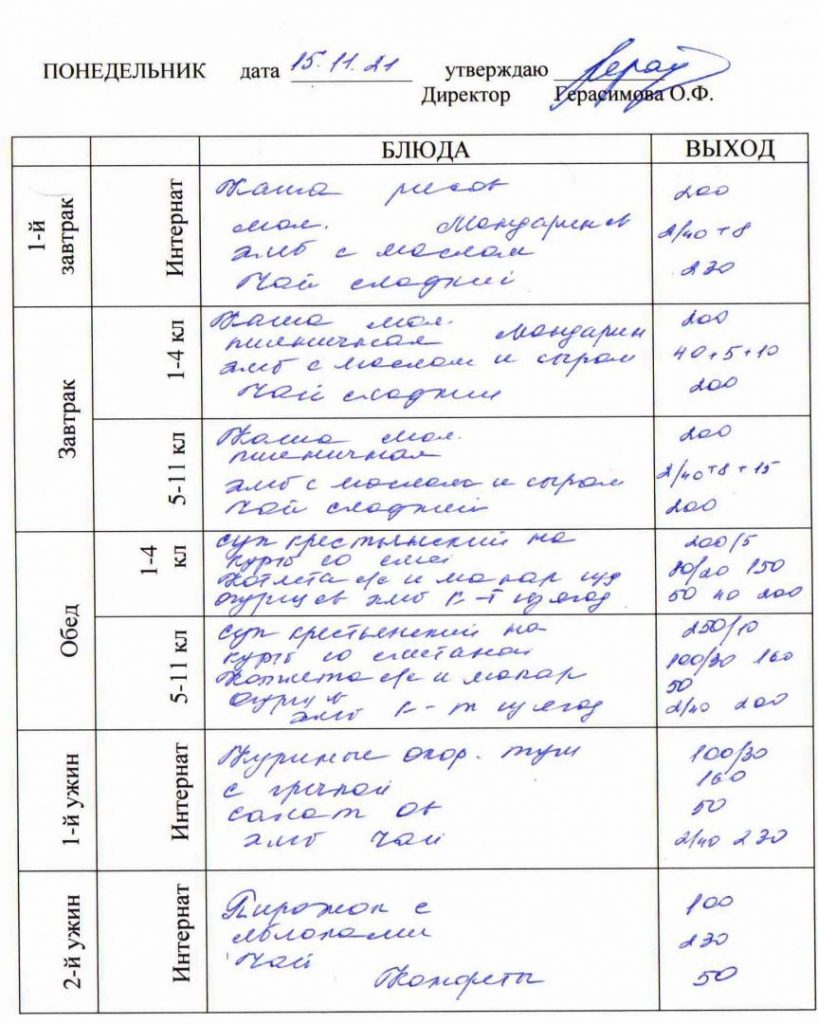 ПОНЕДЕЛЬНИК дата 15.11.21 утверждаю
Директор Герасимова О.Ф.
БЛЮДА ВЫХОД
1-й завтрак Интернат
Каша рисов 200
мол. Мандаринов 2/40+8
хлеб с маслом
Чай сладкий 230
Завтрак 1-4 кл
Каша мол. 200
пшеничная Мандарин
хлеб с маслом и сыром 40+5+10
Чай сладкий 200
5-11 кл
Каша мол. 200
пшеничная
хлеб с маслом и сыром 2/40+8+15
Чай сладкий 200
Обед 1-4 кл
суп крестьянский на 200/5
куры со смет
Котлета с/с и макар 80/20 150
огурцы св хлеб к-т ягод 50 40 200
5-11 кл
суп крестьянский на 250/10
куры со сметаной
Котлета с/с и макар 100/30 160
огурцы 50
хлеб к-т ягод 2/40 200
1-й ужин Интернат
Куриные окор. туш 100/30
с гречкой 160
салат ов 50
хлеб чай 2/40 230
2-й ужин Интернат
Пирожок с 100
яблоками
Чай 230
Конфеты 50